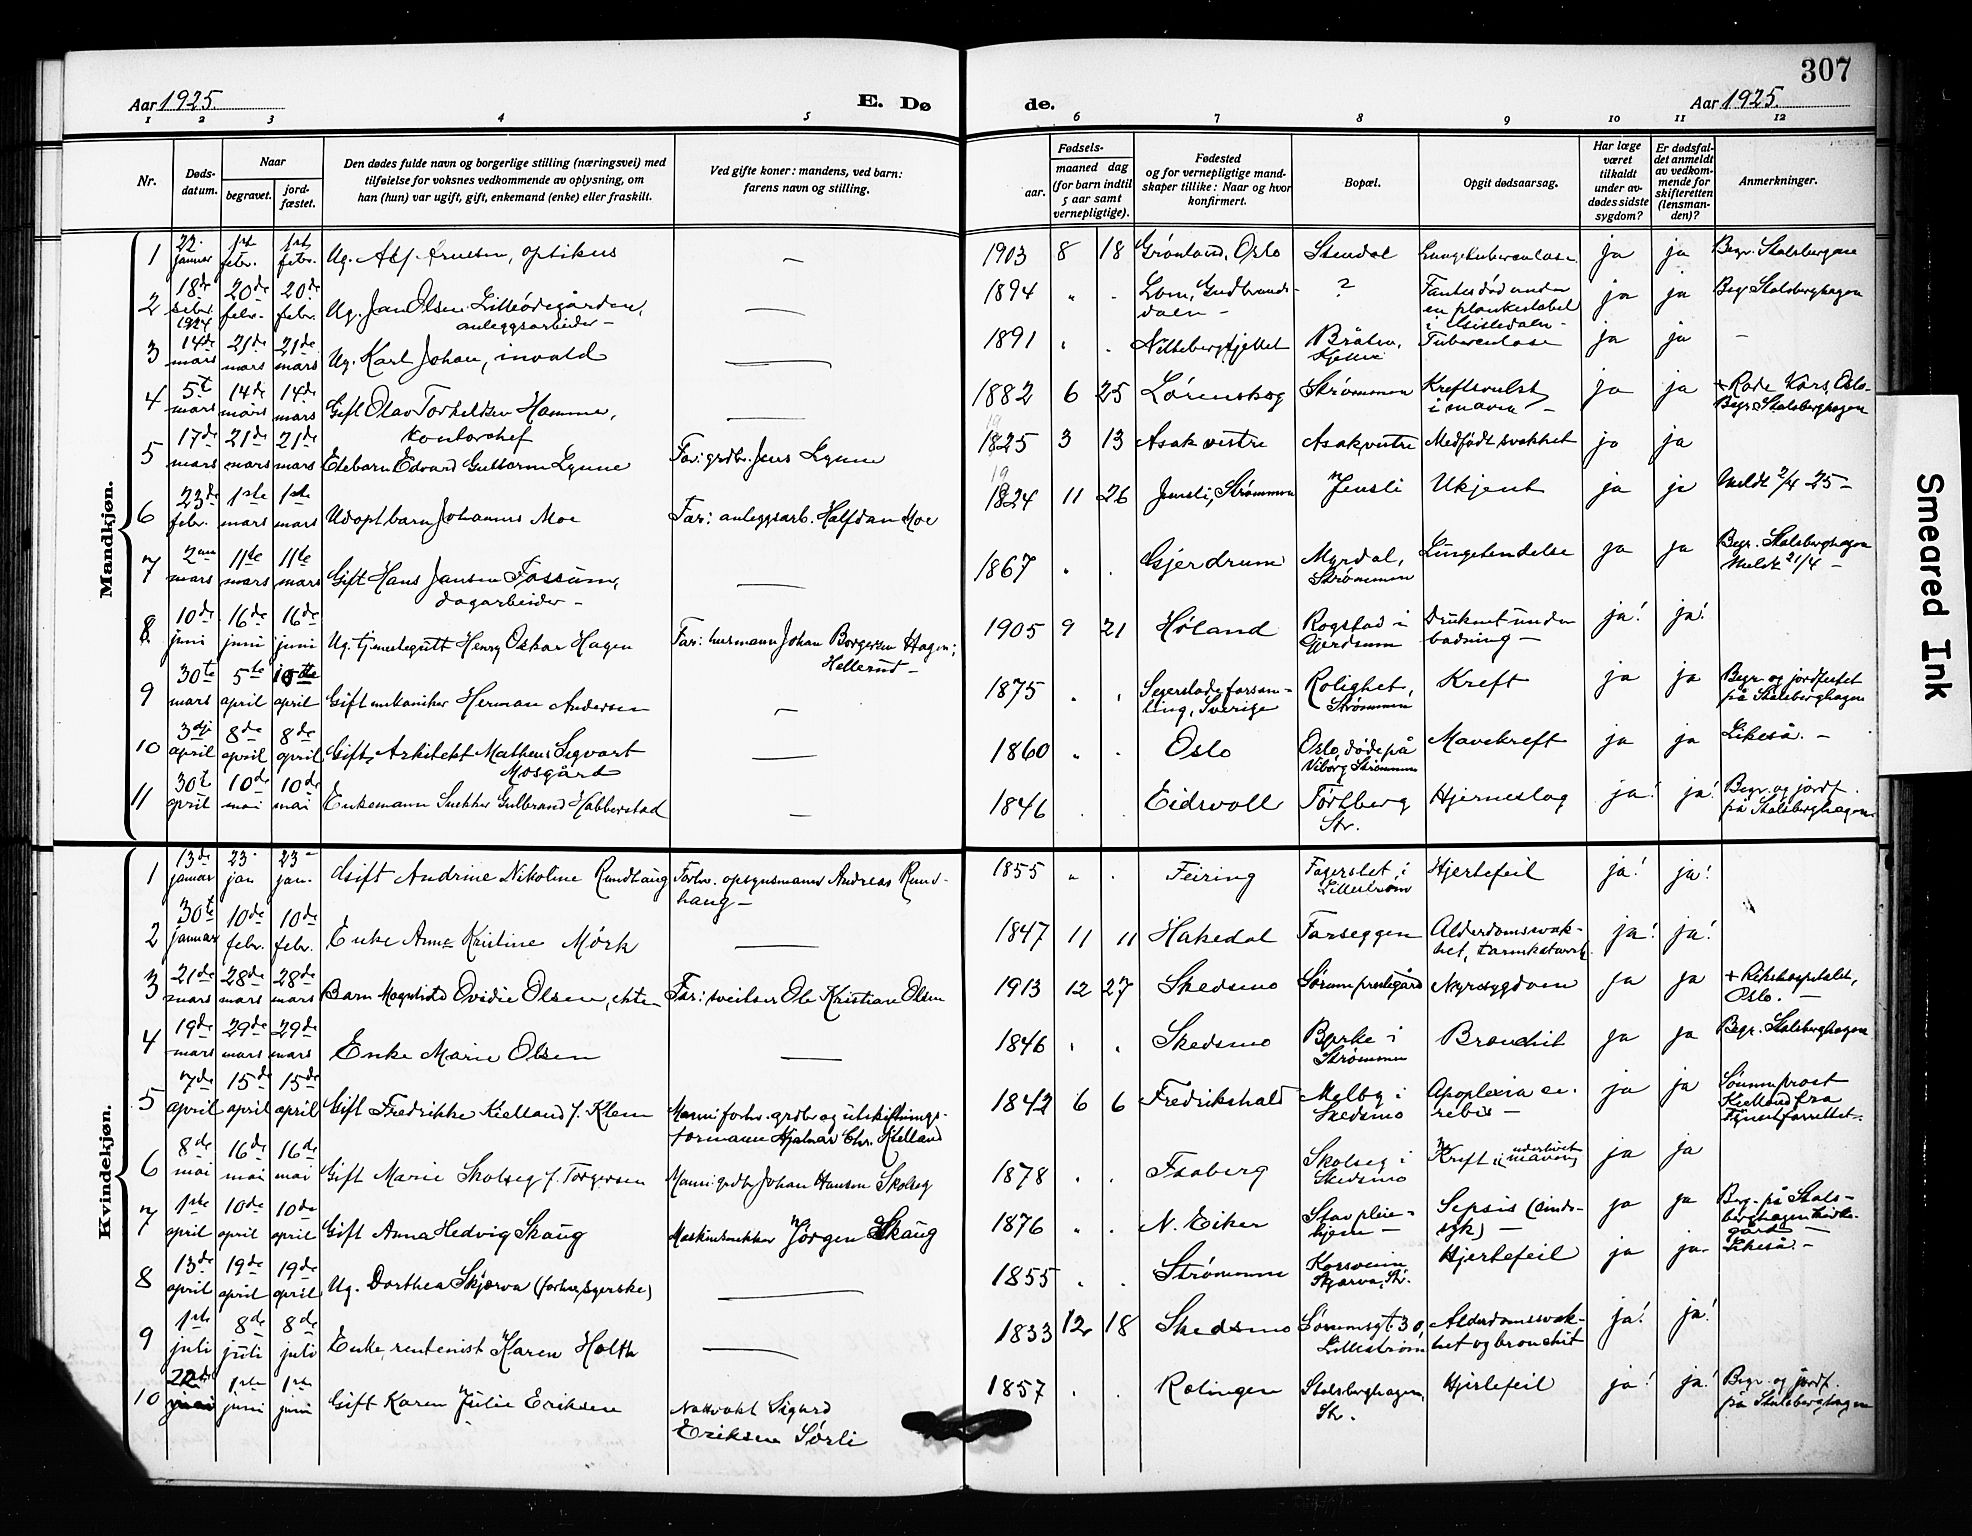 307
Aar 1925.
E. Dø
de.
Aar 1925.
1 2 3 4 5 6 7 8 9 10 11 12
Nr.
Døds-
datum.
Naar
begravet.
jord-
fæstet.
Den dødes fulde navn og borgerlige stilling (næringsvei) med
tilføielse for voksnes vedkommende av oplysning, om
han (hun) var ugift, gift, enkemand (enke) eller fraskilt.
Ved gifte koner: mandens, ved barn:
farens navn og stilling.
Fødsels-
aar.
maaned dag
(for barn indtil
5 aar samt
vernepligtige).
Fødested
og for vernepligtige mand-
skaper tillike: Naar og hvor
konfirmert.
Bopæl.
Opgit dødsaarsag.
Har læge
været
tilkaldt
under av-
dødes sidste
sygdom?
Er dødsfal-
det anmeldt
av vedkom-
mende for
skifteretten
(lensman-
den)?
Anmerkninger.
Mandkjøn.
1 22. januar 1st febr. 1st febr. Ug. Alf Arnesen, optikus — 1903 8 18 Grønland, Oslo Stendal Lungetuberculose ja ja Begr. Stalsberghagen
2 18de 1924 20de febr. 20de febr. Ug. Jan Olsen Lilleødegården,
anleggsarbeider — 1894 " . Lom, Gudbrands-
dalen — ? Fantes død under
en plankestabel
i ja ja Begr. Stalsberghagen
3 14de mars 21de mars 21de mars Ug. Karl Johan, invalid — 1891 " . Nittebergfjellet Bråten,
Kjeller Tuberculose ja ja —
4 5t mars 14de mars 14de mars Gift Olav Torkeldsen Hamme,
kontorchef — 1882 6 25 Lørenskog Strømmen Kreftsvulst
i maven — ja ja + Røde Kors, Oslo.
Begr. Stalsberghagen
5 17de mars 21de mars 21de mars Ektebarn Edvard Guttorm Lynne Far: grdbr. Jens Lynne 19 1825 3 13 Asak vestre Asak vestre Medfødt svakhet ja ja
6 23de febr. 1ste mars 1ste mars Udøpt barn Johannes Moe Far: anleggsarb. Halfdan Moe 19 1824 11 26 Jensli, Strømmen Jensli Ukjent ja ja Meldt 2/4 25 —
7 2nen mars 11te mars 11te mars Gift Hans Jansen Fossum,
dagarbeider — — 1867 " . Gjerdrum Myrdal,
Strømmen Lungetendelse ja ja Begr. Stalsberghagen
Meldt 21/4 —
8 10de juni 16de juni 16de juni Ug. tjenestegutt Henry Oskar Hagen Far: husmann Johan Borgersen Hagen;
Hellerud — 1905 9 21 Høland Rogstad i
Gjerdrum Druknet under
badning — ja! ja!
9 30te mars 5te april april Gift mekaniker Herman Andersen — 1875 " . Segerstads forsam-
ling, Sverige Rolighet,
Strømmen Kreft ja ja Begr. og jordfestet
på Stalsberghagen
10 3dje april 8de april 8de april Gift, Arkitekt Matheus Sigvart
Mosgård — 1860 " . Oslo Oslo, døde på
Viborg Strømmen Mavekreft ja ja Likeså. —
11 30t april 10de mai 10de mai Enkemann Snekker Gulbrand Habberstad — 1846 . . Eidsvoll Tortberg
Str. Hjerneslag ja! ja! Begr. og jordf.
på Stalsberghagen
Kvindekjøn.
1 13de januar 23. jan 23 — jan. Gift Andrine Nikoline Rundhaug Forhv. opsynsmann Andreas Rund-
haug — 1855 " . Feiring Fagerstet i
Lillestrøm Hjertefeil ja! ja!
2 30te januar 10de febr. 10de febr. Enke Anne Kristine Mørk — 1847 11 11 Hakedal Farseggen Alderdomssvak-
het, tarmkatarrh ja! ja!
3 21de mars 28de mars 28de mars Barn Magnhild Ovidie Olsen, ekte Far: sveitser Ole Kristian Olsen 1913 12 27 Skedsmo Sørum prestegård Nyresygdom ja ja + Rikshospitalet,
Oslo. —
4 19de mars 29de mars 29de mars Enke Marie Olsen — 1846 . . Skedsmo Bjerke i
Strømmen Bronchit ja ja Begr. Stalsberghagen
5 7de april 15de april 15de april Gift Fredrikke Kielland f. Klem Mann: forhv. grdbr. og utskiftnings-
formann Hjalmar Chr. Kielland 1842 6 6 Fredrikshald Melby i
Skedsmo Apoplexia ce-
rebri — ja ja Sønnen prost
Kielland fra
forrettet.
6 8de mai 16de mai 16de mai Gift Marie Skolseg f. Torgersen Mann: grdbr. Johan Hansen Skolseg 1878 . . Faaberg Skolseg i
Skedsmo Kreft i underlivet
maven ja ja
7 1ste april 10de april 10de april Gift Anna Hedvig Skaug Maskinsnekker Jørgen Skaug 1876 " . N. Eiker Stav pleie-
hjem — Sepsis (sinds-
syk) — ja ja Begr. på Stals-
berghagen kirke-
gård —
8 13de april 19de april 19de april Ug. Dorthea Skjærva (forhv. syerske) — 1855 . . Strømmen Korsveien
Skjærva, Str. Hjertefeil ja ja Likeså —
9 1ste juli 8de juli 8de juli Enke, rentenist Karen Holth — 1833 12 18 Skedsmo Sørumsgt. 30,
Lillestrøm Alderdomssvak-
het og bronchit ja! ja!
10 1ste juni 1ste juni Gift Karen Julie Eriksen Nattvakt Sigurd
Eriksen Sørli 1857 . . Rælingen Stalsberghagen,
Str. Hjertefeil ja! ja! Begr. og jordf.
på Stalsberghagen
Smeared Ink